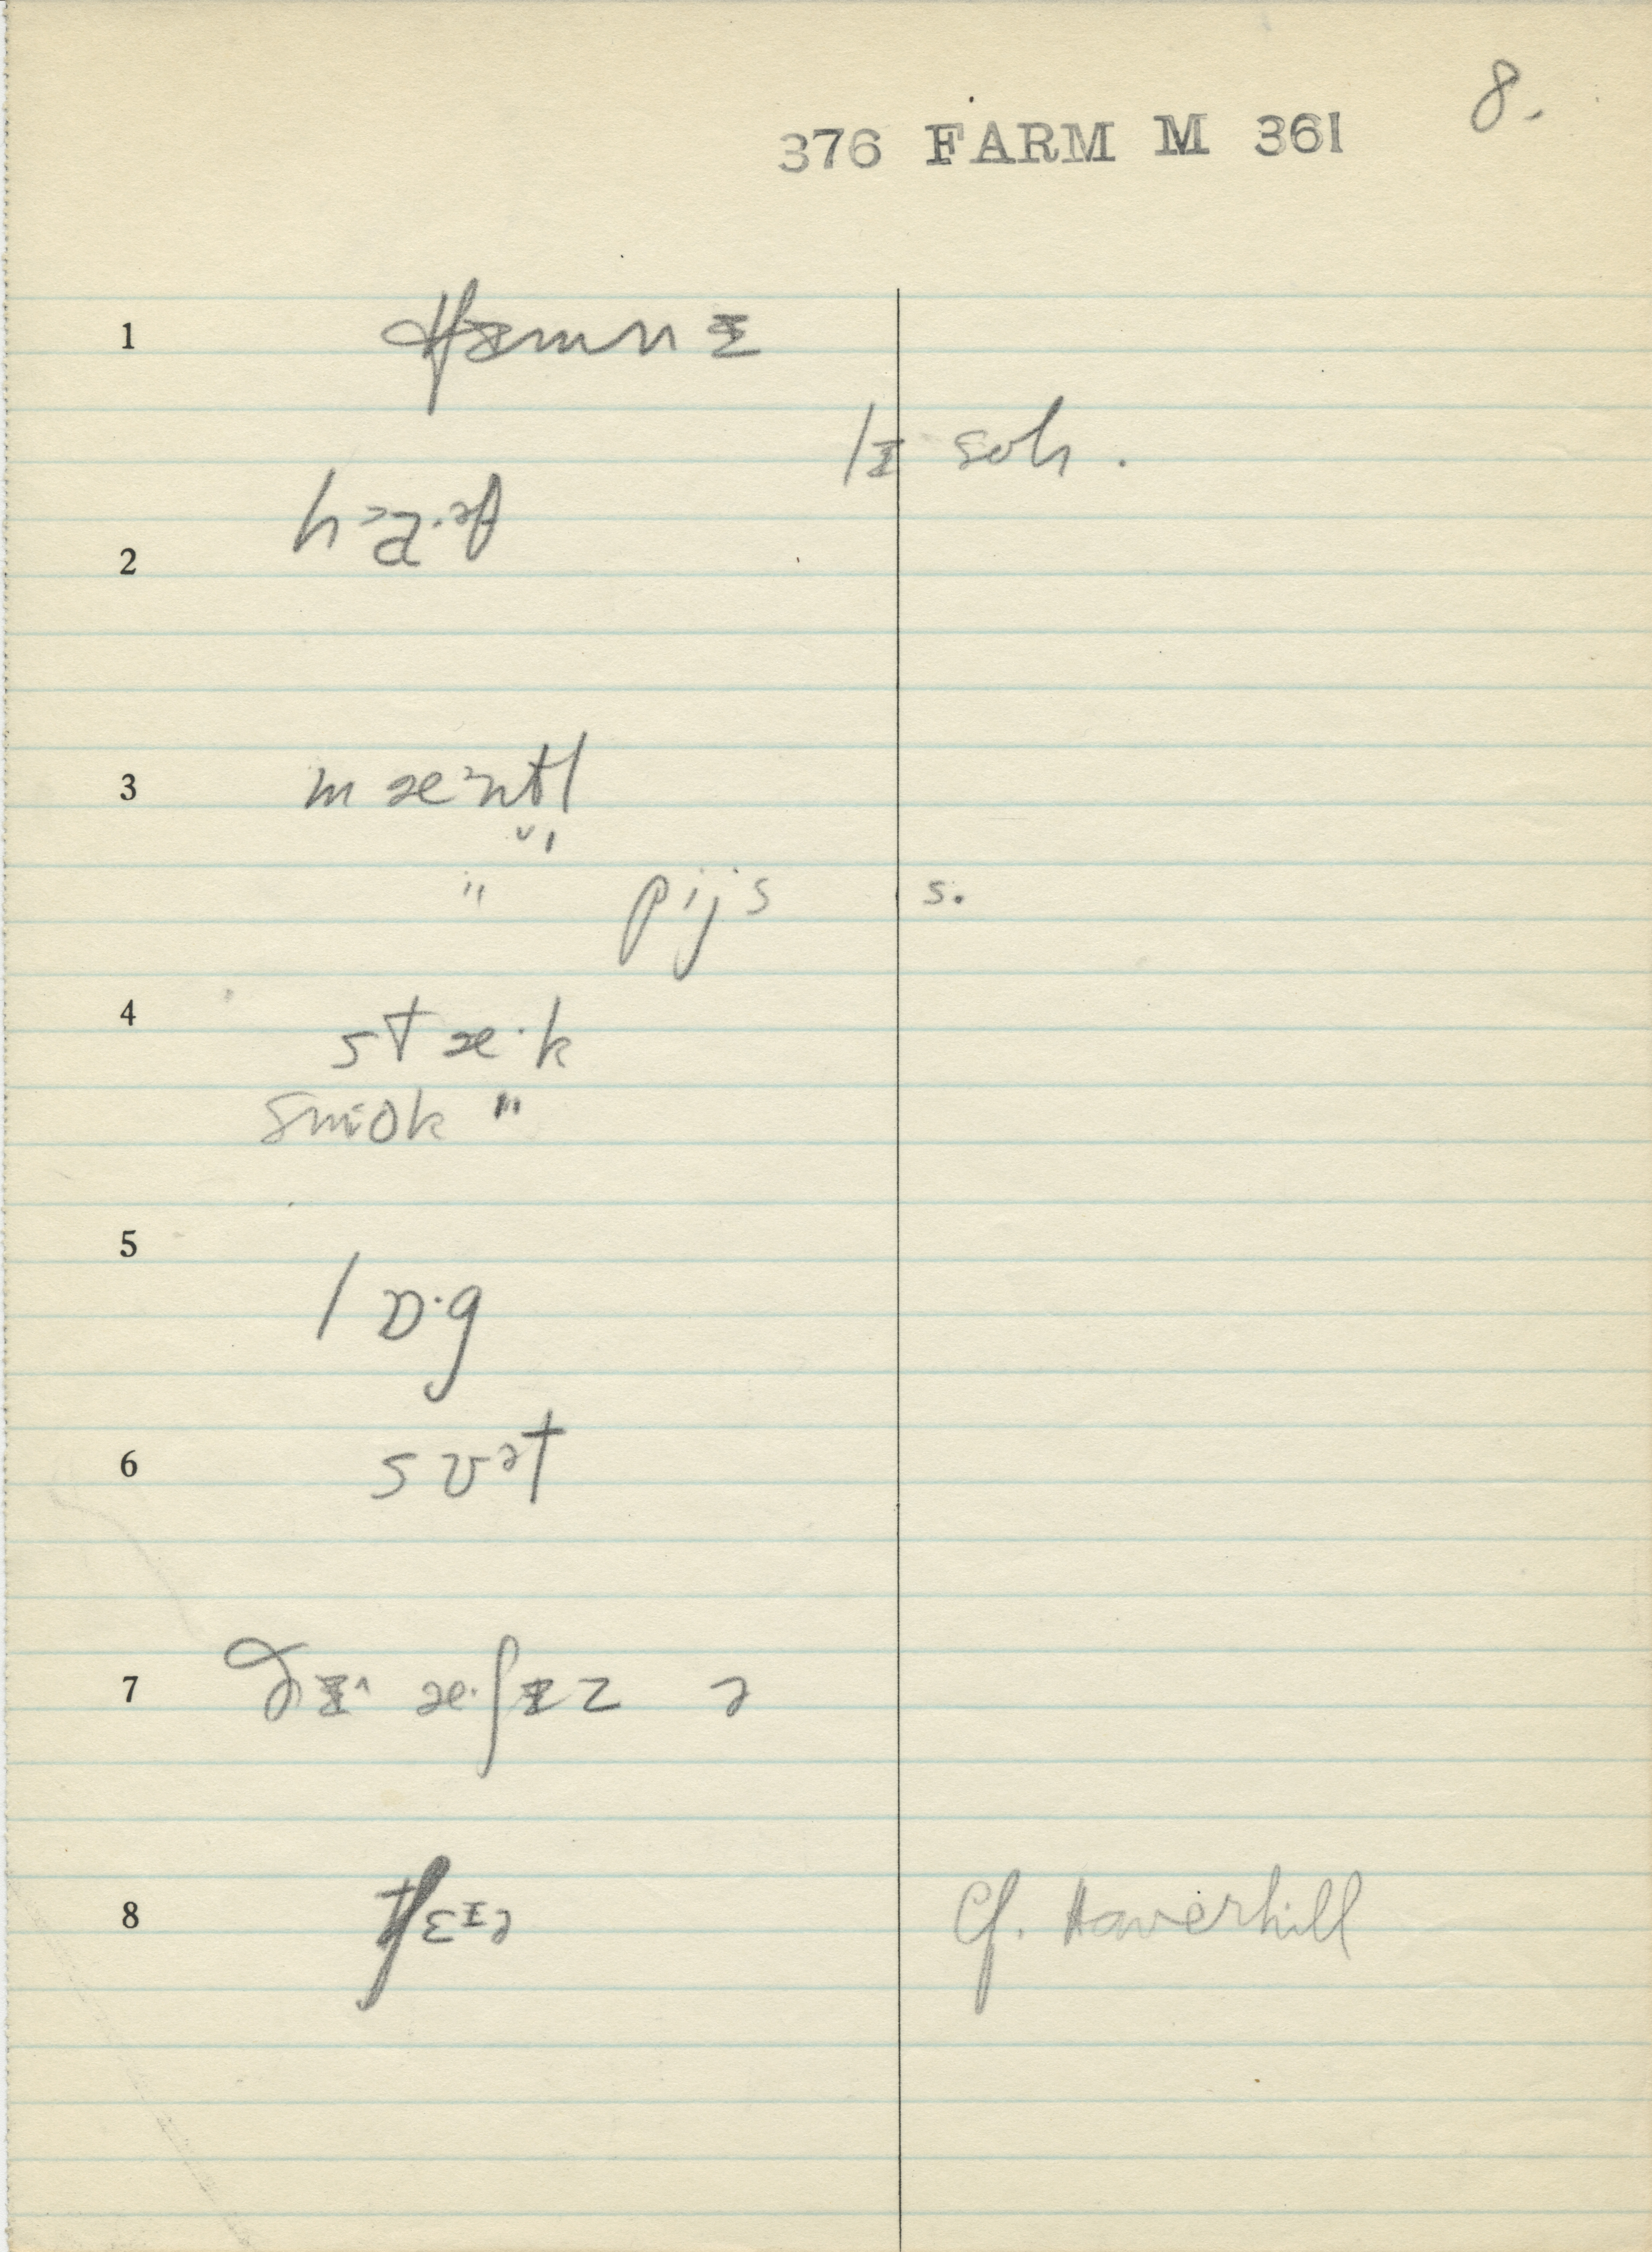 8.
376 FARM M 361
1 tʃɪmnɪ
lɪ sol.
2
3 mæᵊntl
" pijs s.
4 stæ·k
smok "
5 lɒ·g
6 sʊᵊt
7 ðɪ^ æ·ʃɪz ə
8 tʃɛɪə Cf. Haverhill